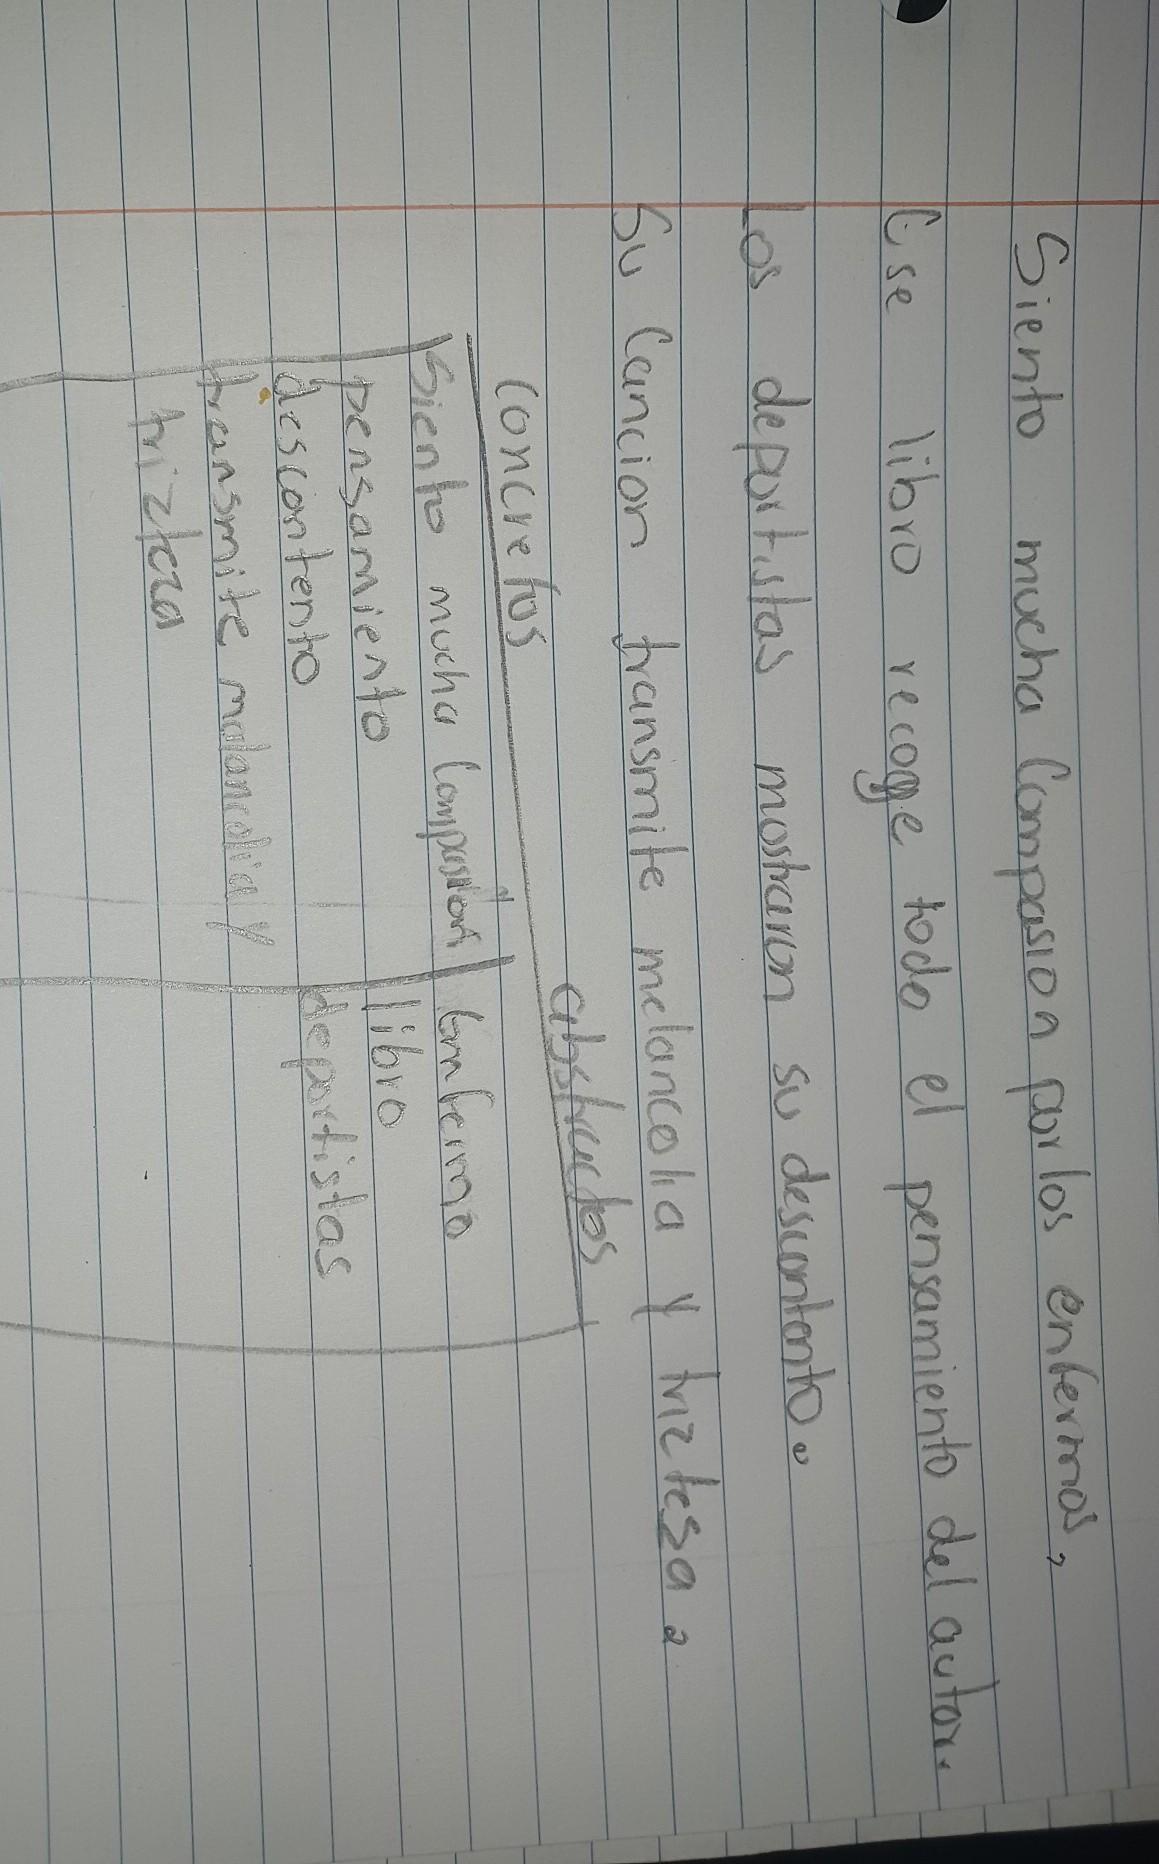 Siento mucha Compasion por los enfermos,
Ese libro recoge todo el pensamiento del autor.
Los deportistas mostraron su descontento.
Su Cancion transmite melancolia y triztesa.
Concretos abstractos
Siento mucha Compasion Emfermo
pensamiento libro
descontento deportistas
transmite malancolia y
trizteza